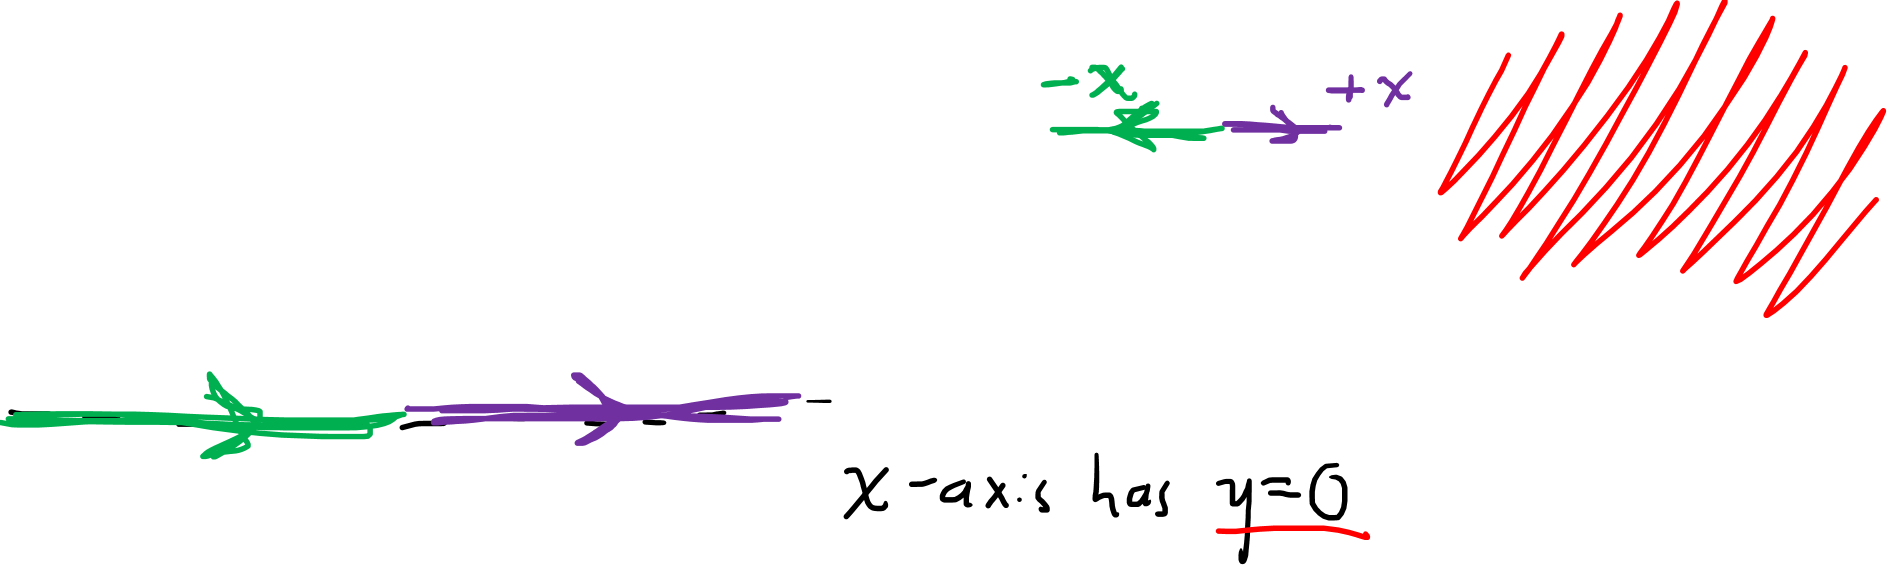 -x +x
x-axis has y=0